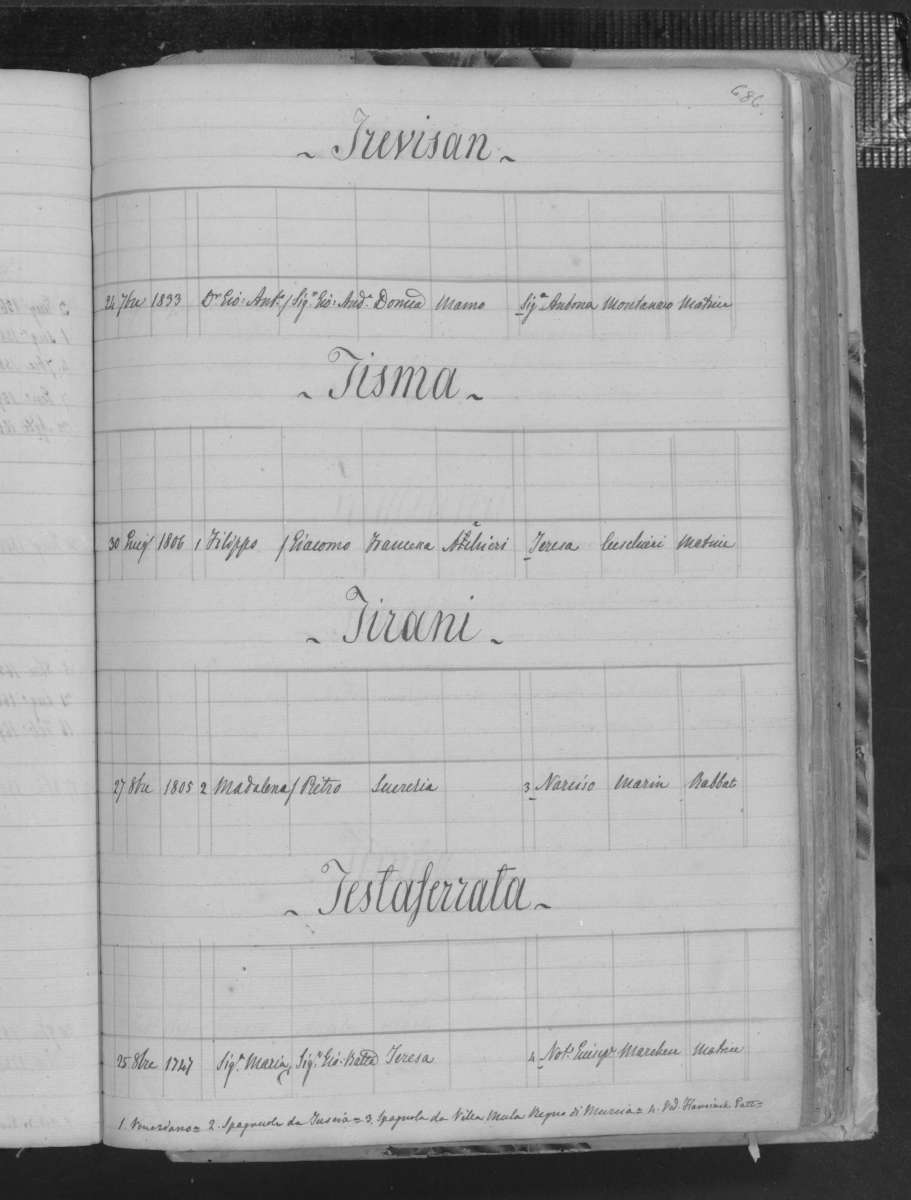 686
~ Trevisan ~
24 7bre 1833 Dr Gio: Antº / Sigr Gio: Andª Donica Mamo Sigra Antonia Montanaro Matrice
~ Tisma ~
30 1806 1 Filippo / Giacomo Francesca Teresa Matrice
~ Tirani ~
27 8bre 1805 2 Madalena / Pietro Lucrezia 3 Narciso Marin Rabbat
~ Testaferrata ~
25 8bre 1747 Sigra Maria / Sigr Gio: Batta Teresa 4 Notr Giusepe Marchen Matrice
1. Veneziano = 2. Spagnuola da = 3. Spagnolo da Villa Mula Regno di Murcia = 4. Ved.